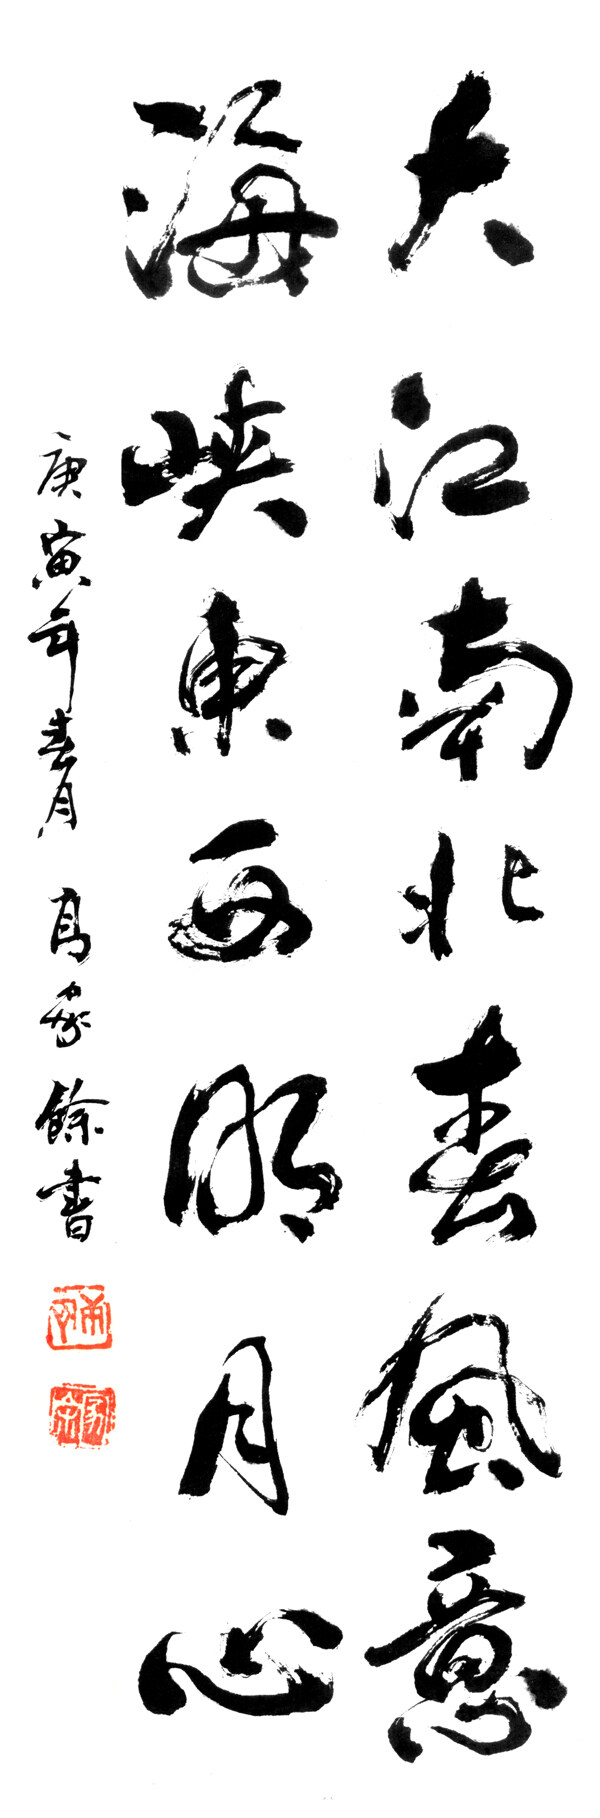 大江南北春風意
海峽東西明月心
庚寅年春月 高家餘書